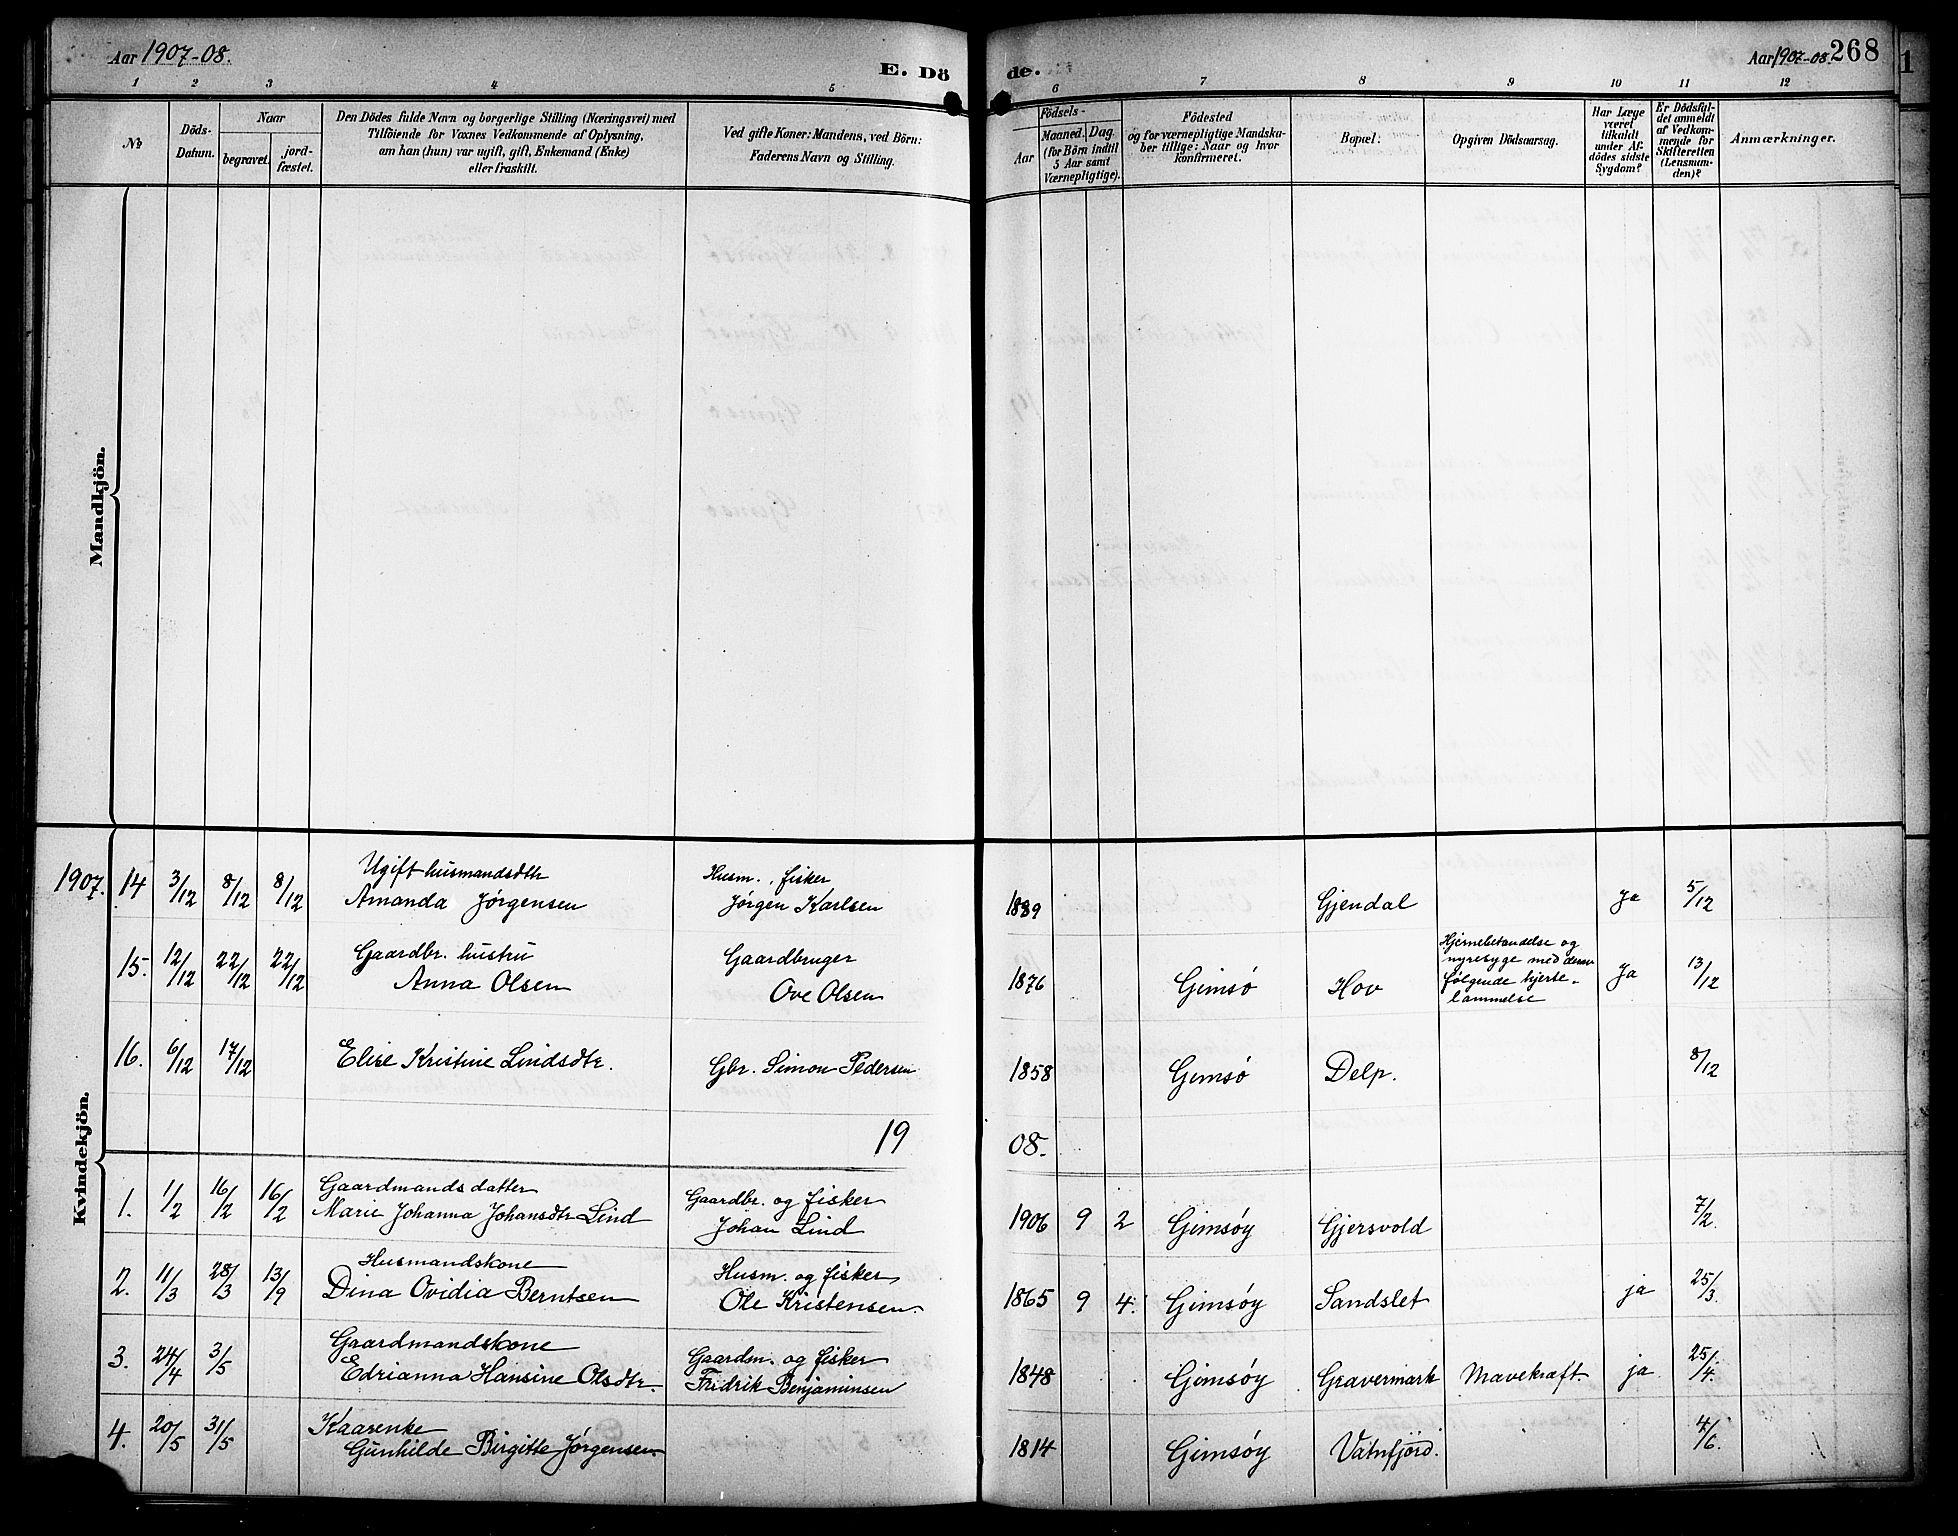 Aar 1907-08.
E. Dö
de.
Aar 1907-08. 268
1 2 3 4 5 6 7 8 9 10 11 12
№
Döds-
Datum.
Naar
begravet.
jord-
fæstet.
Den Dödes fulde Navn og borgerlige Stilling (Næringsvei) med
Tilföiende for Voxnes Vedkommende af Oplysning,
om han (hun) var ugift, gift, Enkemand (Enke)
eller fraskilt.
Ved gifte Koner: Mandens, ved Börn:
Faderens Navn og Stilling.
Födsels-
Aar
Maaned. Dag.
(for Börn indtil
5 Aar samt
Værnepligtige).
Födested
og for værnepligtige Mandska-
ber tillige: Naar og hvor
konfirmeret.
Bopæl.
Opgiven Dödsaarsag.
Har Læge
været
tilkaldt
under Af-
dödes sidste
Sygdom?
Er Dödsfal-
det anmeldt
af Vedkom-
mende for
Skifteretten
(Lensman-
den)?
Anmærkninger.
Mandkjön.
Kvindekjön.
1907. 14 3/12 8/12 8/12 Ugift husmandsdtr
Amanda Jørgensen
Husm. , fisker
Jørgen Karlsen
1889 Gjendal Ja 5/12
15. 12/12 22/12 22/12 Gaardbr. hustru
Anna Olsen
Gaardbruger
Ove Olsen
1876 Gimsø Hov
Hjernebetændelse og
nyresyge med
følgende hjerte-
lammelse
Ja 13/12
16. 6/12 17/12 Elise Kristine Lindsdtr. Gbr. Simon Pedersen 1858 Gimsø Delp. 8/12
19 08.
1. 1/2 16/2 16/2 Gaardmands datter
Marie Johanna Johansdtr Lind
Gaardbr. og fisker
Johan Lind
1906 9 2 Gimsøy Gjersvold 7/2.
2. 11/3 28/3 13/9 Husmandskone
Dina Ovidia Berntsen
Husm. og fisker
Ole Kristensen.
1865 9 4. Gimsøy Sandslet ja 25/3.
3. 24/4 3/5 Gaardmandskone
Edrianna Hansine Olsdtr.
Gaardm. og fisker
Fridrik Benjaminsen
1848 Gimsøy Gravermark Mavekræft ja 25/4.
4. 20/5 31/5 Kaarenke
Gunhilde Birgitte Jørgensen.
1814 Gimsøy Vatnfjord. 4/6.